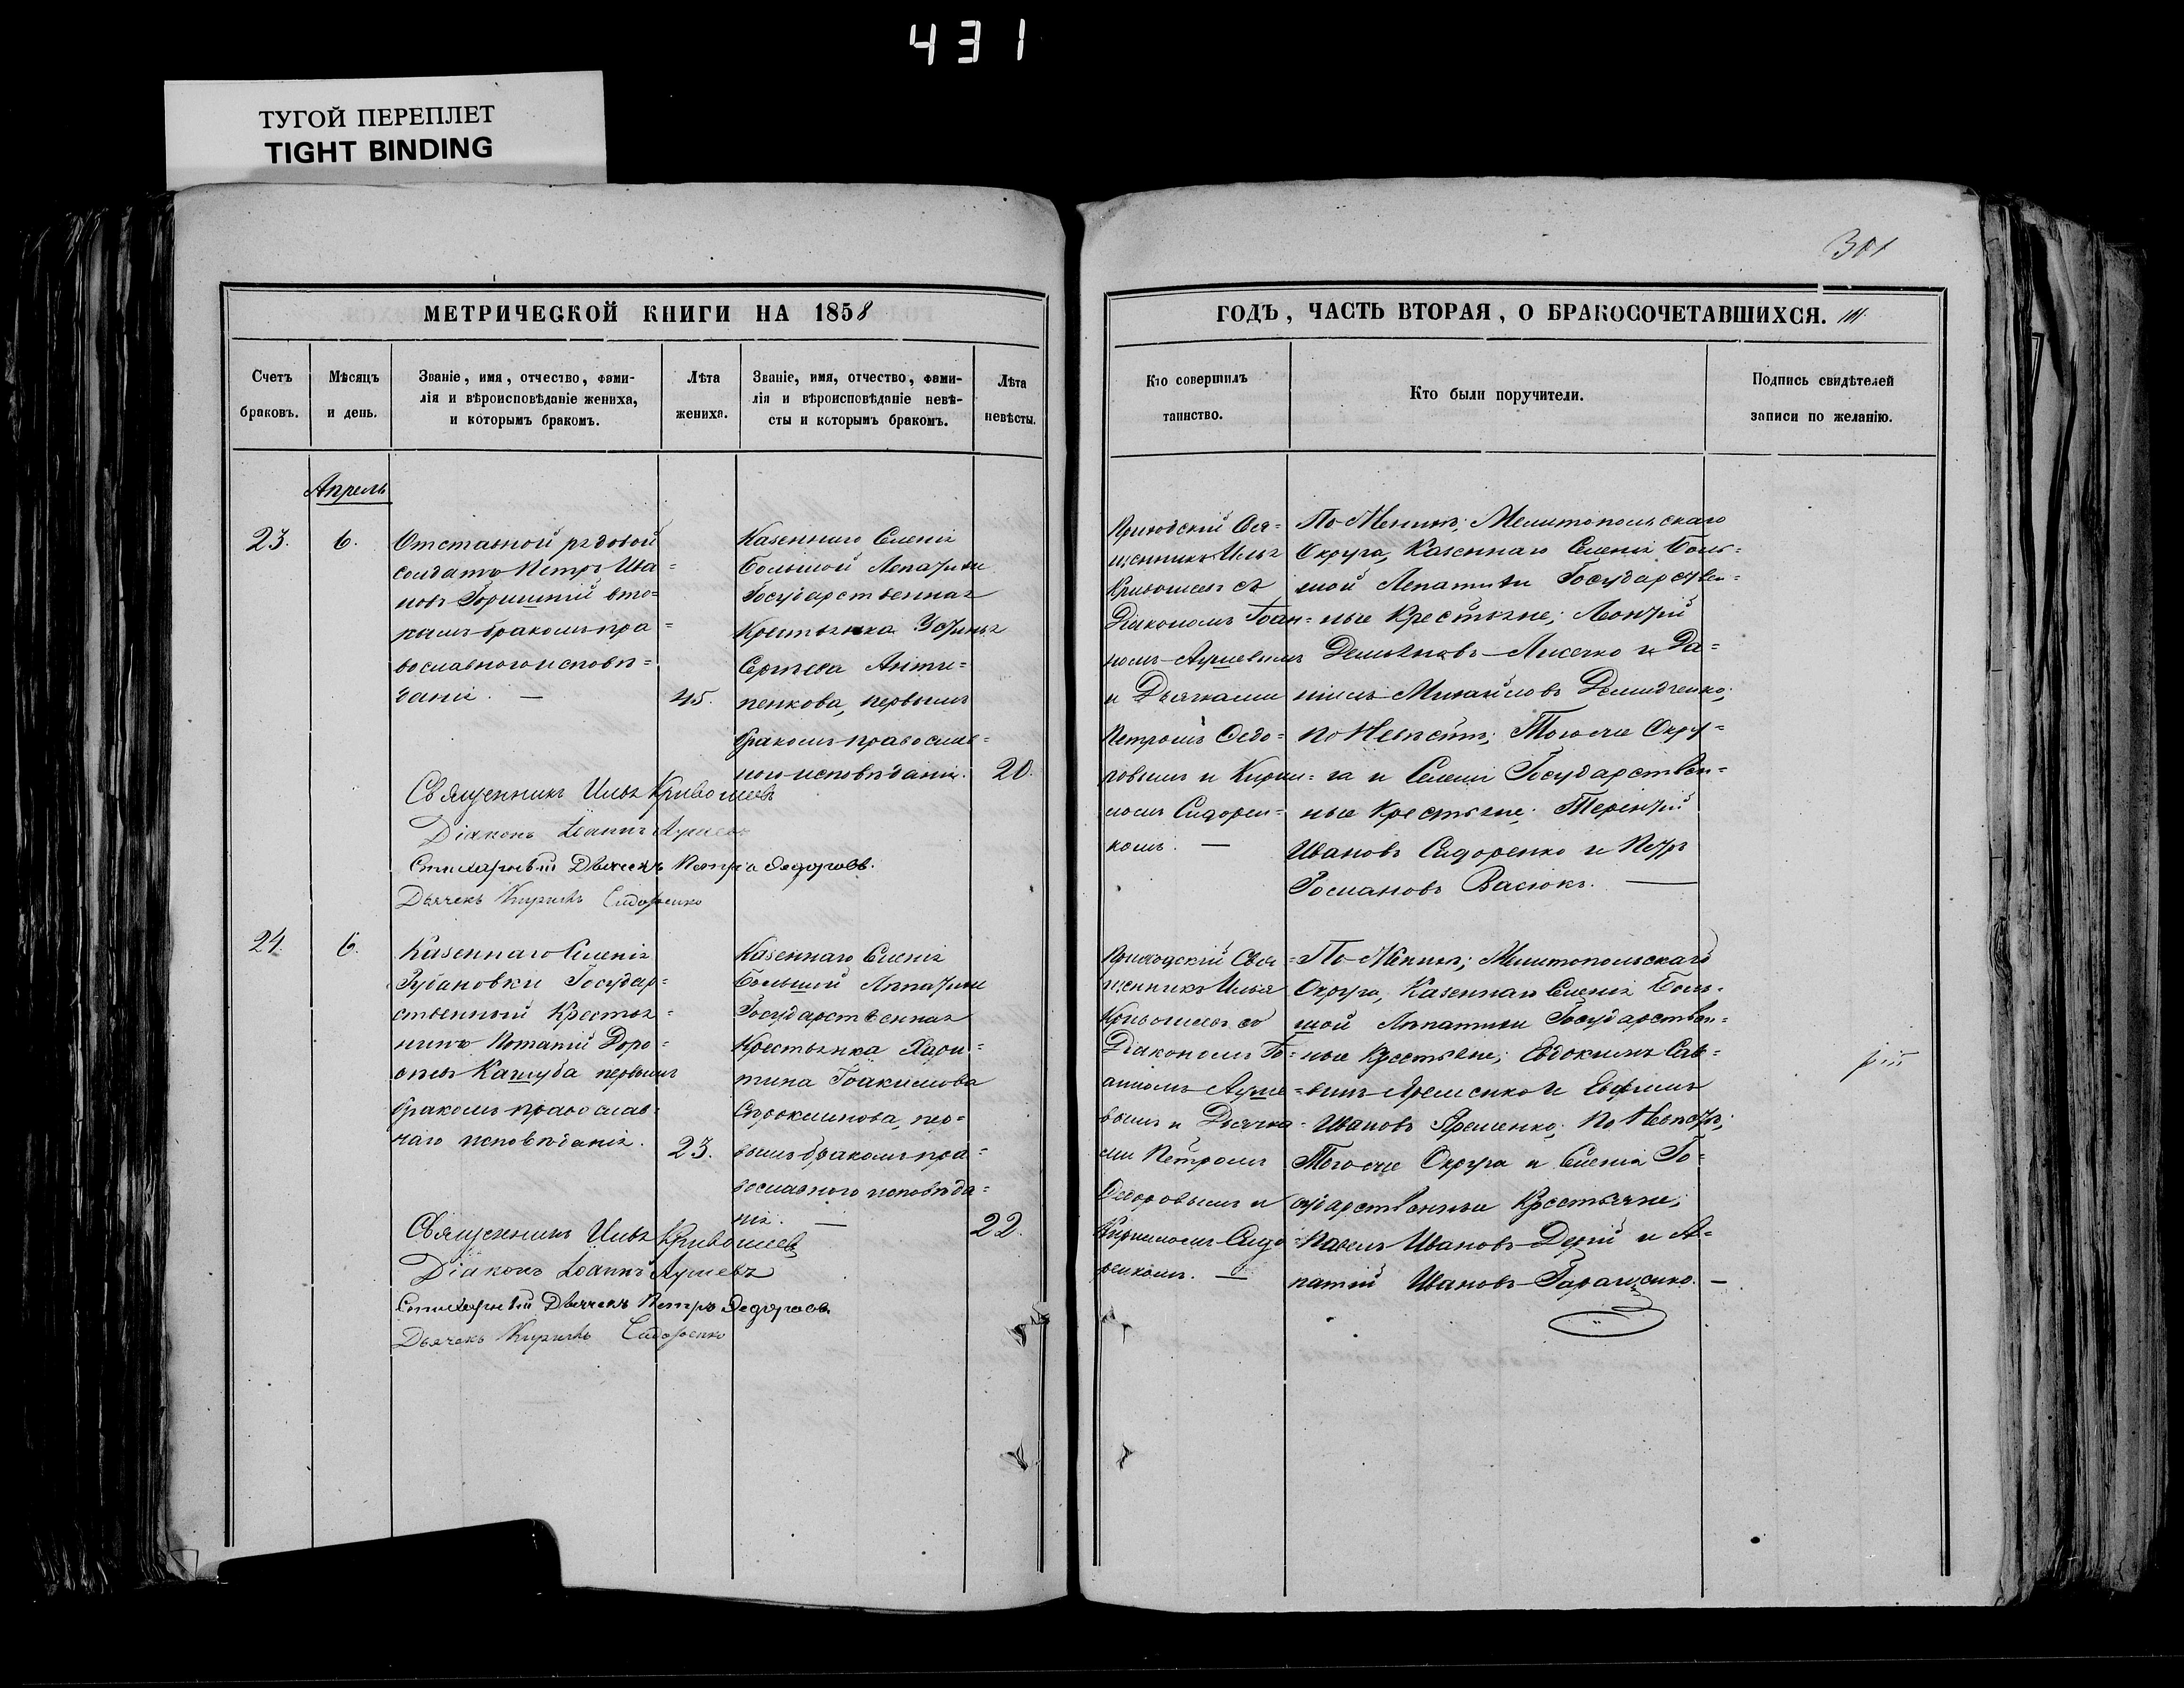 431
ТУГОЙ ПЕРЕПЛЕТ
TIGHT BINDING
301
МЕТРИЧЕСКОЙ КНИГИ НА 1858
Счетъ
браковъ.
Мѣсяцъ
и день.
Званіе, имя, отчество, фами-
лія и вѣроисповѣданіе жениха,
и которымъ бракомъ.
Лѣта
жениха.
Званіе, имя, отчество, фами-
лія и вѣроисповѣданіе невѣ-
сты и которымъ бракомъ.
Лѣта
невѣсты.
Апрель
23.
6.
Отставной рядовой
солдатъ Петръ Ива=
новъ вто=
рымъ бракомъ пра=
вославного исповѣ=
данія. —
45.
Казенного Селенія
Большой Лепатихи
Государственная
Крестьянка Устинья
Сергѣева Анти=
пенкова, первымъ
бракомъ православ=
ного исповѣданія.
20.
Священникъ Илья Кривошеевъ
Діаконъ Іоаннъ
Стихарный Дьячекъ Петръ Федоровъ.
Дьячекъ Кирилъ Сидоренко
24.
6.
Казеннаго Селенія
Рубановки Государ=
ственный Крестья=
нинъ Потапій Доро=
феевъ Кашуба первымъ
бракомъ православ=
наго исповѣданія.
23.
Казеннаго Селенія
Большой Лепатихи
Государственная
Крестьянка Хари=
тина Іоакимова
пер=
вымъ бракомъ пра=
вославного исповѣда=
нія. —
22.
Священникъ Илья Кривошеевъ
Діаконъ Іоаннъ
Стихарный Дьячекъ Петръ Федоровъ
Дьячекъ Кирилъ Сидоренко
ГОДЪ, ЧАСТЬ ВТОРАЯ, О БРАКОСОЧЕТАВШИХСЯ.
Кто совершилъ
таинство.
Кто были поручители.
Подпись свидѣтелей
записи по желанію.
Приходскій Свя=
щенникъ Илья
Кривошеевъ съ
Діакономъ Іоан=
номъ
и Дьячками
Петромъ Федо=
ровымъ и Кирил=
ломъ Сидорен=
комъ. —
По Женихѣ; Мелитопольскаго
Округа, Казеннаго Селенія Боль=
шой Лепатихи Государствен=
ные Крестьяне; Леонтій
Демьяновъ Лисечко и Да=
ніилъ Михайловъ Демидченко;
по Невѣстѣ; Того же Окру=
га и Селенія Государствен=
ные Крестьяне; Терентій
Ивановъ Сидоренко и Петръ
Романовъ Васюкъ. —
Приходскій Свя=
щенникъ Илья
Кривошеевъ съ
Діакономъ Іо=
анномъ
вымъ и Дьячка=
ми Петромъ
Федоровымъ и
Кирилломъ Сидо
ренкомъ. —
По Женихѣ; Мелитопольскаго
Округа, Казеннаго Селенія Боль=
шой Лепатихи Государствен=
ные Крестьяне; Евдокимъ Сав=
винъ Яременко и Ефимъ
Ивановъ Яременко; по Невѣстѣ;
Того же Округа и Селенія Го=
сударственные Крестьяне;
Павелъ Ивановъ Дерій и А=
патій Ивановъ Гаращенко. —